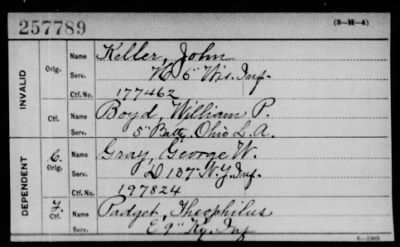 257789 (3-H-4)
INVALID
Orig. Name Keller, John
Serv. K 5" Wis. Inf.
Ctf. No. 177462
Ctf. Name Boyd, William P.
Serv. 5" Batty. Ohio L. A.
DEPENDENT
C. Orig. Name Gray, George W.
Serv. D 137 N.Y. Inf.
Ctf. No. 197824
Ctf. Name Padget, Theophilus
Serv. E 9" Ky. Inf